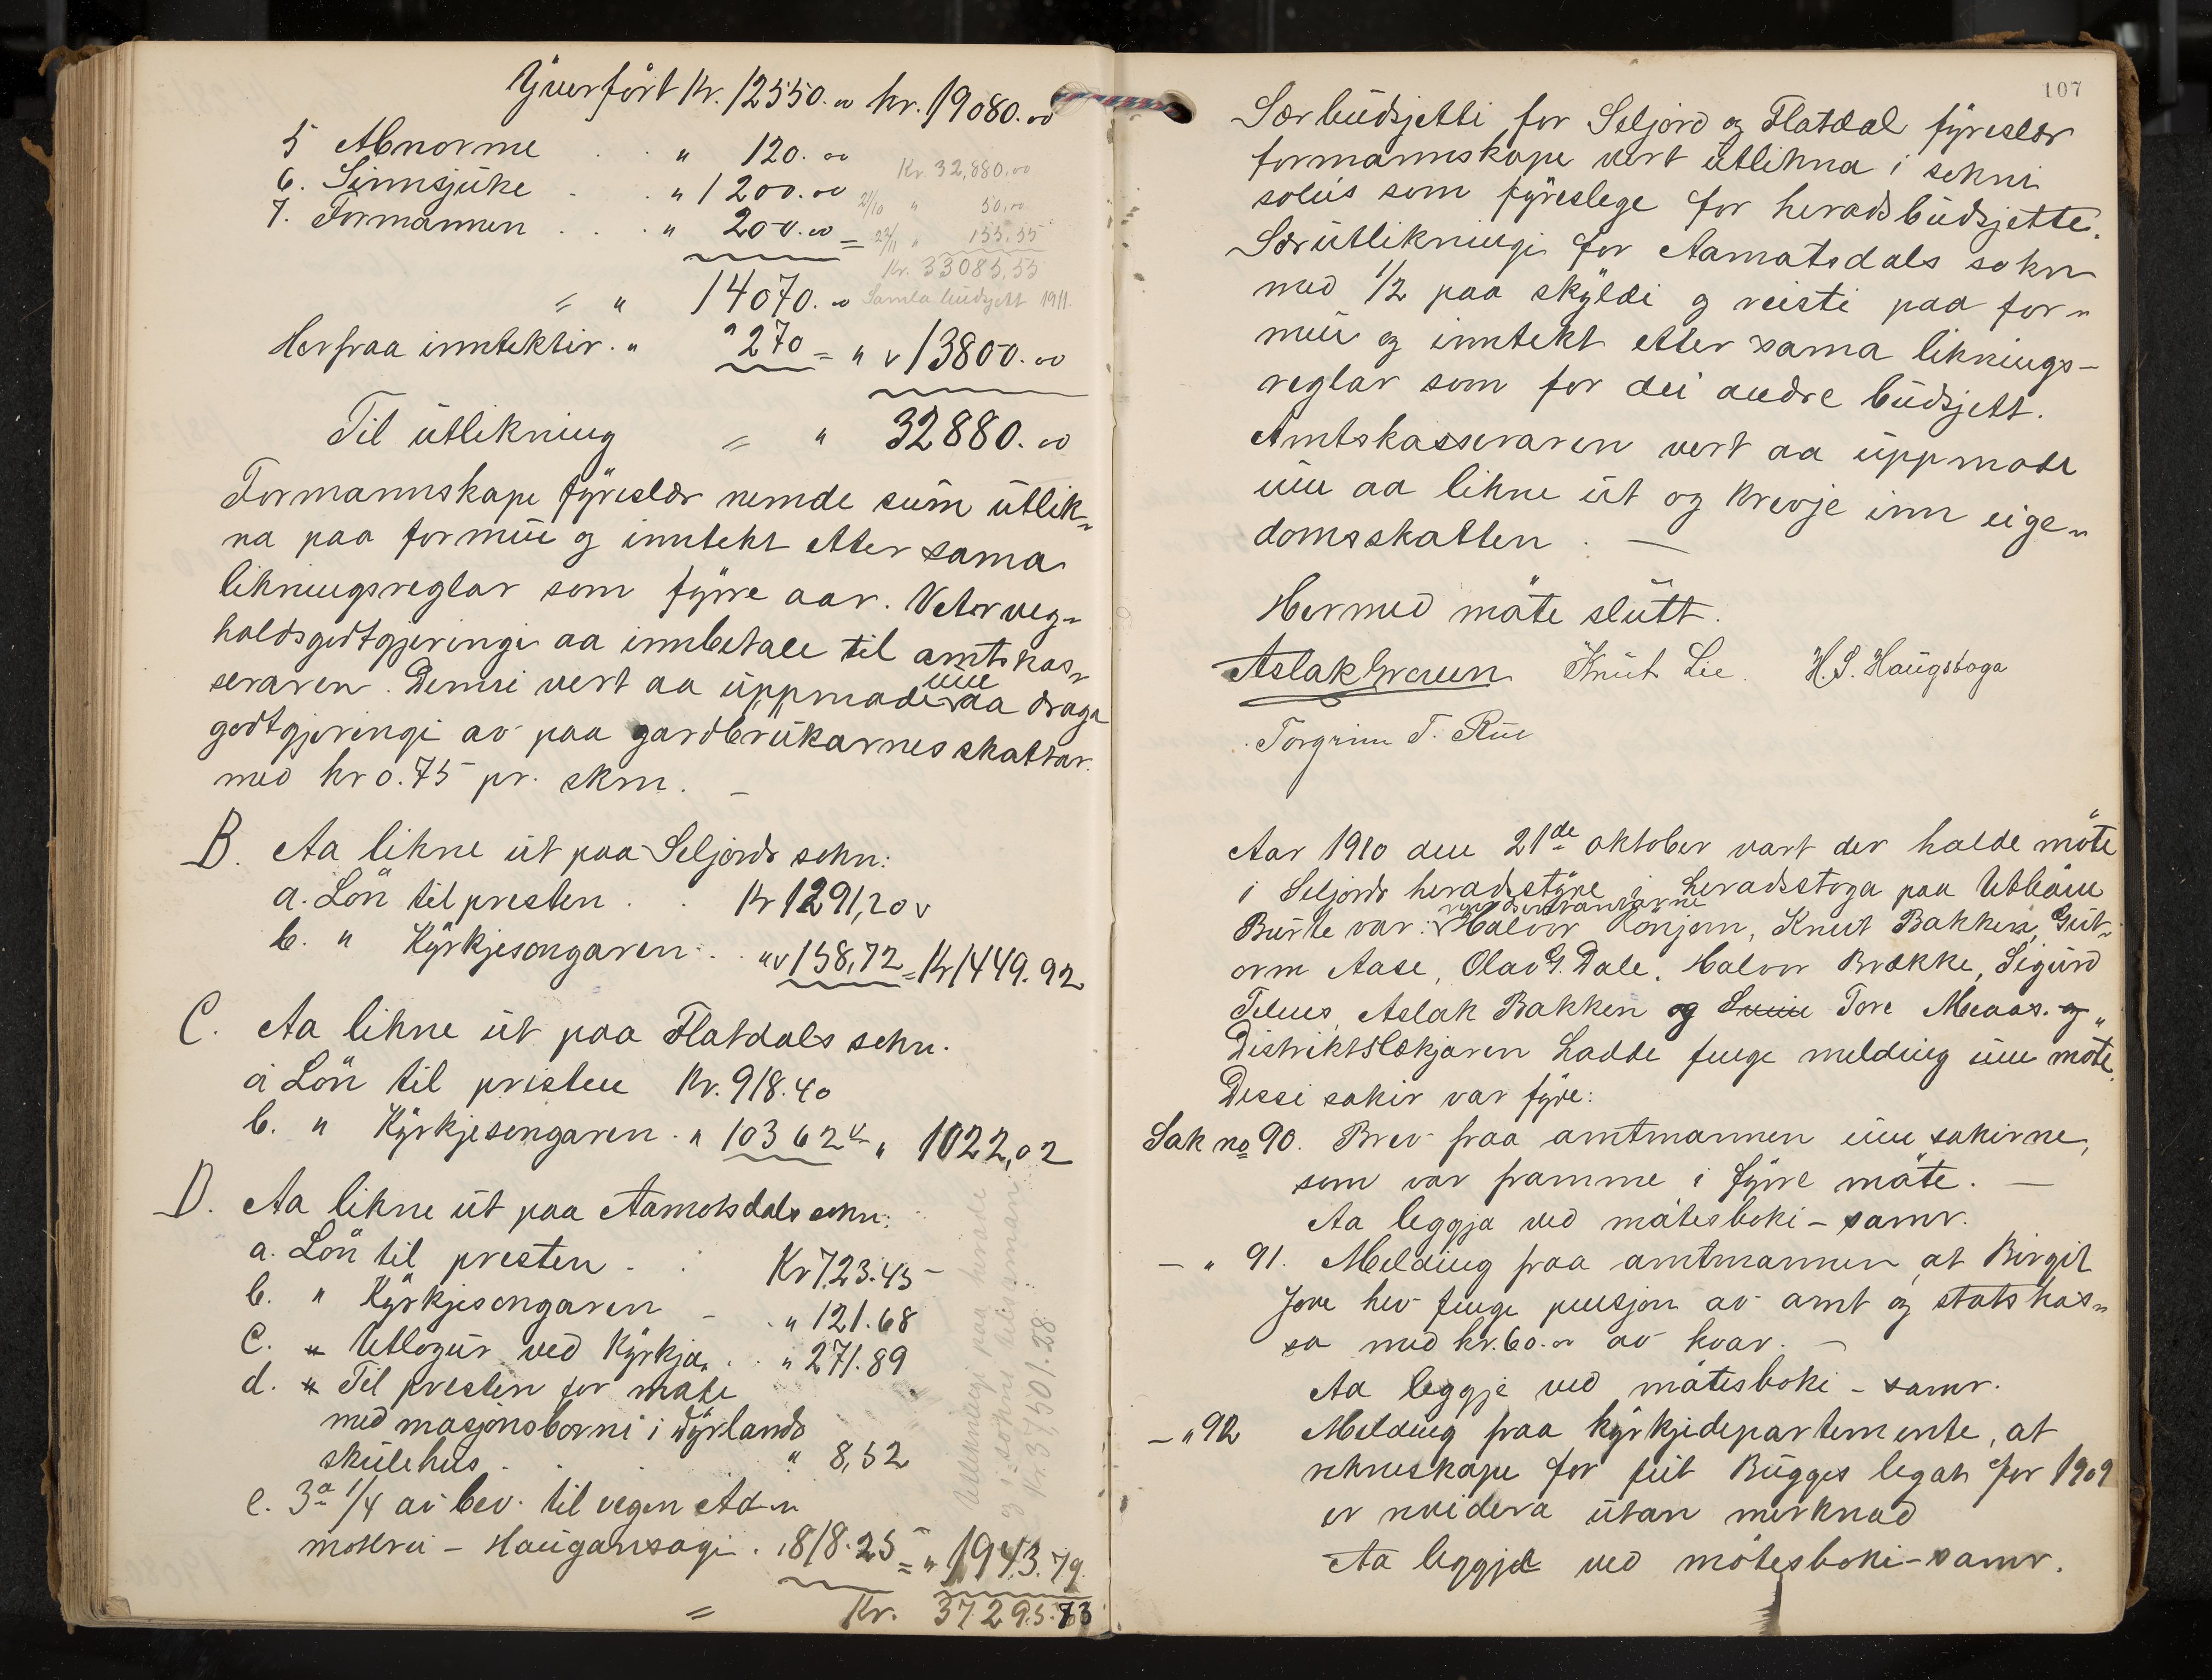 Yverført Kr. 12550.00 kr. 19080.00
5 Abnorme . . " 120.00
6. Sinnsjuke . . " 1200.00
7. Formannen . . " 200.00 =
Kr. 32,880.00
21/10 " 50,00
22/11 " 155,55
Kr. 33085,55
Samla budsjett 1911.
= " 14070.00
Herfraa inntektir . " 270 = " v 13800.00
Til utlikning = " 32880.00
Formannskape fyreslær nemde sum utlik-
na paa formue og inntekt etter sama
likningsreglar som fyrre aar. Vetorveg-
haldsgodtgjeringi aa innbetale til amtskas-
seraren. Denni vert aa uppmode um aa draga
godtgjeringi av paa gardbrukarnes skattar
med kr 0.75 pr. skm. –
B. Aa likne ut paa Seljords sokn:
a. Lön til presten . . Kr 1291,20 v
b. " Kyrkjesongaren . . " v 158,72 = Kr 1449.92
C. Aa likne ut paa Flatdals sokn.
a Lön til presten Kr. 918.40
b. " Kyrkjesongaren . " 103 62 " 1022,02
D. Aa likne ut paa Aamotsdals sokn:
a. Lön til presten . . Kr 723.45
b. " Kyrkjesongaren – . " 121.68
c. " Utlogur ved Kyrkja . . " 271.89
d. " Til presten for møte
med masjonsborni i Dyrlands
skulehus . . " 8,52
e. 3a 1/4 av bev. til vegen Ad-
mokru – Haugansagi . " 818.25 = " 1943.79
= Kr. 37295.73
Utliknings paa herade
og i sokni tilsaman
Kr. 37501.28
107
Særbudsjetti for Seljord og Flatdal fyreslær
formannskape vert utlikna i sokni
soleis som fyreslege for heradsbudsjette.
Særutlikningi for Aamotsdals sokn
med 1/2 paa skyldi og reisti paa for-
mue og inntekt etter sama liknings-
reglar som for dei andre budsjett.
Amtskasseraren vert aa uppmode
um aa likne ut og krevje inn eige-
domsskatten. —
Hermed møte slutt.
Aslak Graun Knut Lie. H. S. Haugstoga
Torgrim T. Rue
Aar 1910 den 21de oktober vart der halde møte
i Seljords heradsstyre i heradsstoga paa Utbøen
representantarne
Burte var: Halvor Lönjem, Knut Bakken, Gut-
orm Aase, Olav G. Dale, Halvor Brække, Sigurd
Telnes, Aslak Bakken og Tore Meaas. og
Distriktslækjaren hadde fenge melding um møte.
Dessi sakir var fyre:
Sak no 90. Brev fraa amtmannen um sakirne,
som var framme i fyrre møte. —
Aa leggja ved møtesboki – samr.
– " 91. Melding fraa amtmannen at Birgit
Jore hev fenge pensjon av amt og statskas-
sa med kr. 60.00 av kvar. –
Aa leggje ved møtesboki – samr.
– " 92 Melding fraa kyrkjedepartemente, at
rekneskape for futt Bugges legat for 1909
er revidera utan merknad
Aa leggje ved møtesboki – samr.